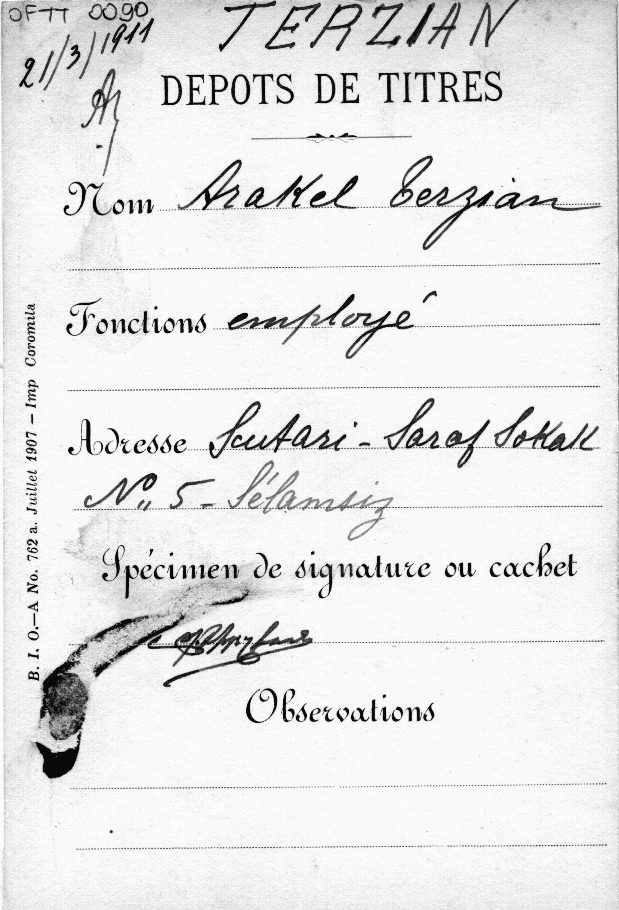 OFTT 0090
TERZIAN
21/3/1911
DEPOTS DE TITRES
Nom Arakel Terzian
Fonctions employé
Adresse Scutari - Saraf Sokak
No 5 - Sélamsiz
Spécimen de signature ou cachet
Observations
B. I. O.—A No. 762 a. Juillet 1907 — Imp Coromila